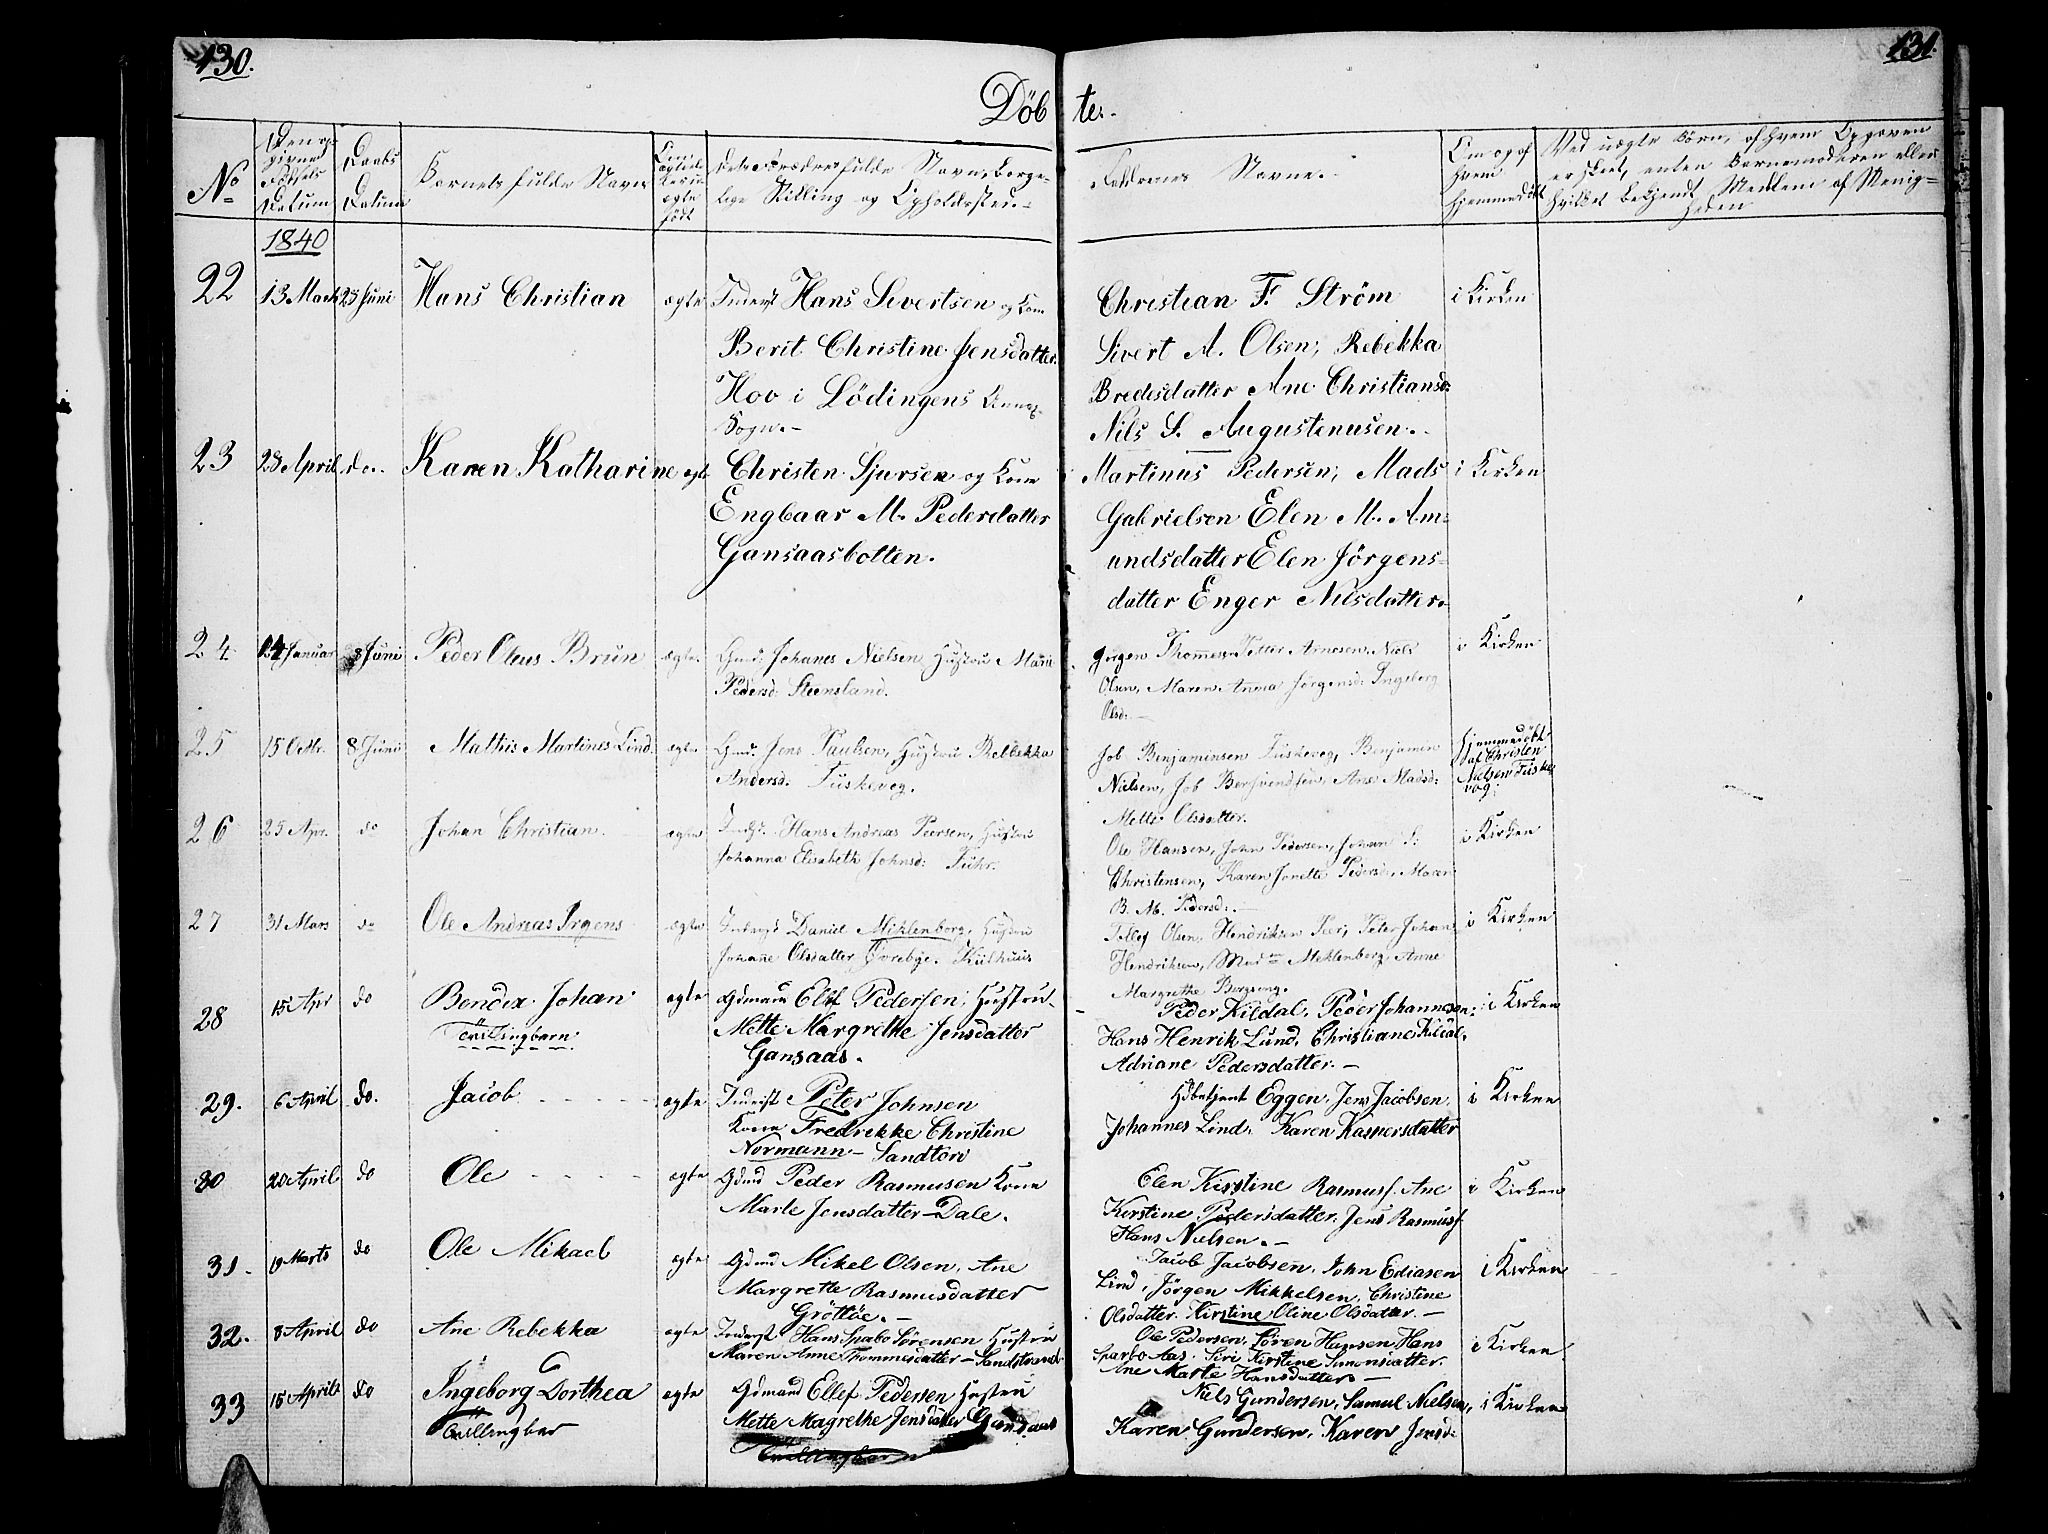 130.
131.
Döb te.
No
Datum
Daabs Datum
Barnets fulde Navn
Forældres fulde Navn, Borgerlige Stilling og Opholdssted.
Faddrenes Navne.
Om og af hvem hjemmedöbt
Ved uægte Börn, af hvem Opgaven
er skeet, enten Barnemoderen eller
hvilket bekjendt Medlem af Menig=
heden
1840
22 13 Marts Juni Hans Christian ægte Inderst Hans Sivertsen og Kone
Berit Christine Jensdatter
Hov i Lödingens Annex
Sogn.-
Christian F. Ström i Kirken
Sivert A. Olsen, Rebekka
Bredesdatter Ane Christiansd:
Nils S. Augustinusen.
23 28 April do. Karen Katharine ægte Christen Sjursen og Kone
Engbaar M. Pedersdatter
Gansaasbotten.
Martinus Pedersen, Mads i Kirken
Gabrielsen Elen M. Am=
undsdatter Elen Jörgens=
datter Enger Nilsdatter.
24 Januar 8 Juni Peder Oleus Brun ægte Gmd: Johanes Nielsen Hustru Marie
Pedersd. Steensland.
Jörgen Thommesen Petter Arnesen, Niels i Kirken
Olsen, Maren Anna Jörgensd: Ingeborg
Olsd:-
25 15 Octbr. 8 Juni Mathis Martines Lind. ægte Gmd: Jens Paulsen, Hustru Rebekka
Andersd. Fiskevog.
Job Benjaminsen Fiskevog, Benjamin
Nielsen, Job Ane Madsd:
Mette Olsdatter.
hjemmedöbt
af Christen
Nielsen Fiske
vog.
26 25 Apr. do Johan Christian. ægte Inderst Hans Andreas Peersen, Hustru
Johanna Elisabeth Johnsd:
Ole Hansen, John Pedersen, Johan S: i Kirken
Christensen, Karen Jonette Pedersd:, Maren
B. M. Pedersd:.-
27 31 Mars do Ole Andreas Irgens ægte Inderst Daniel Miklenborg, Hustru
Johane Olsdatter
Tollef Olsen, Hendriksen Peter Johan i Kirken
Hendriksen, Mad Meklenborg, Anne
Margrethe
28 15 Apr do Bendix Johan ægte Gdmand Elef Pedersen, Hustru
Tvillingbarn Mette Margrethe Jensdatter
Gansaas.
Peder Kildal, Peder Johannesen, i Kirken
Hans Henrik Lund, Christiane Kildal.
Adriane Pedersdatter.-
29. 6 April do. Jacob ægte Inderst Peter Johnsen
Kone Fredrikke Christine
Normann - Sandtorv
Eggen, Jens Jacobsen, i Kirken
Johannes Lind, Karen Kaspersdatter
30 20 April do Ole ægte Gdmd Peder Rasmusen Kone
Marte Jensdatter - Dale.
Elen Kirstine Rasmusf. Ane i Kirken
Kirstine Pedersdatter, Jens Rasmusf
Hans Nielsen.-
31. 19 Marts do Ole Mikael ægte Gdmd Mikel Olsen, Ane
Margrethe Rasmusdatter
Gröttöe.-
Jacob Jacobsen, John Ediasen i Kirken
Lind, Jörgen Mikkelsen, Christine
Olsdatter. Kirstine Oline Olsdatter.-
32. 8 April do Ane Rebekka ægte Inderst Hans Spabo Sörensen Hustru
Maren Anne Thommesdatter - Sandstrand
Ole Pedersen, Sören Hansen, Hans i Kirken
Sparbo Aas. Siri Kirstine Simonsdatter.
Ane Marte Hansdatter.-
33 15 April do Ingeborg Dorthea ægte Gdmand Ellef Pedersen Hustru
Tvillingbar Mette Magrethe Jensdatter Gansaas
Tvillingbarn
Niels Gundersen, Samul Nielsen, i Kirken
Karen Gundersen, Karen Jensd: